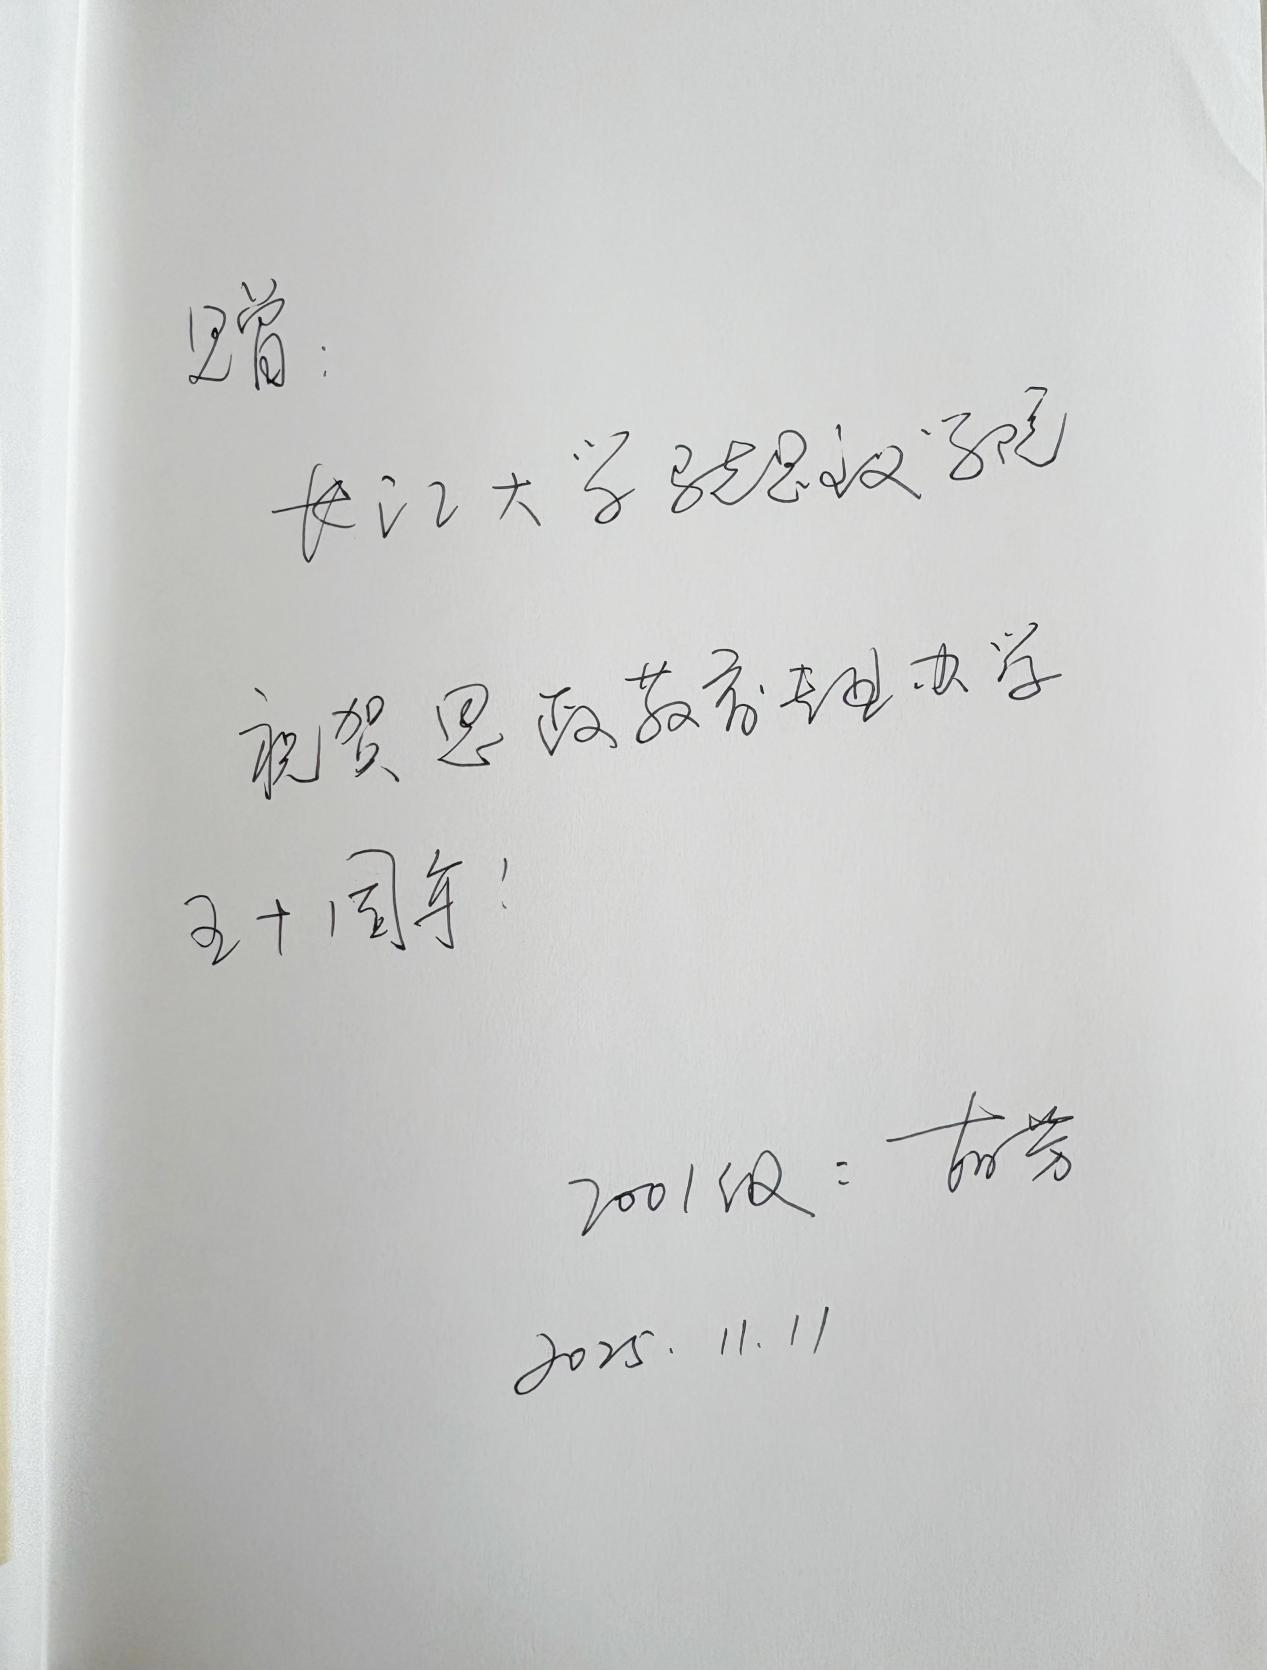 赠：
长江大学马克思主义学院
祝贺思政教育专业办学
五十周年！
2001级：胡芳
2025.11.11